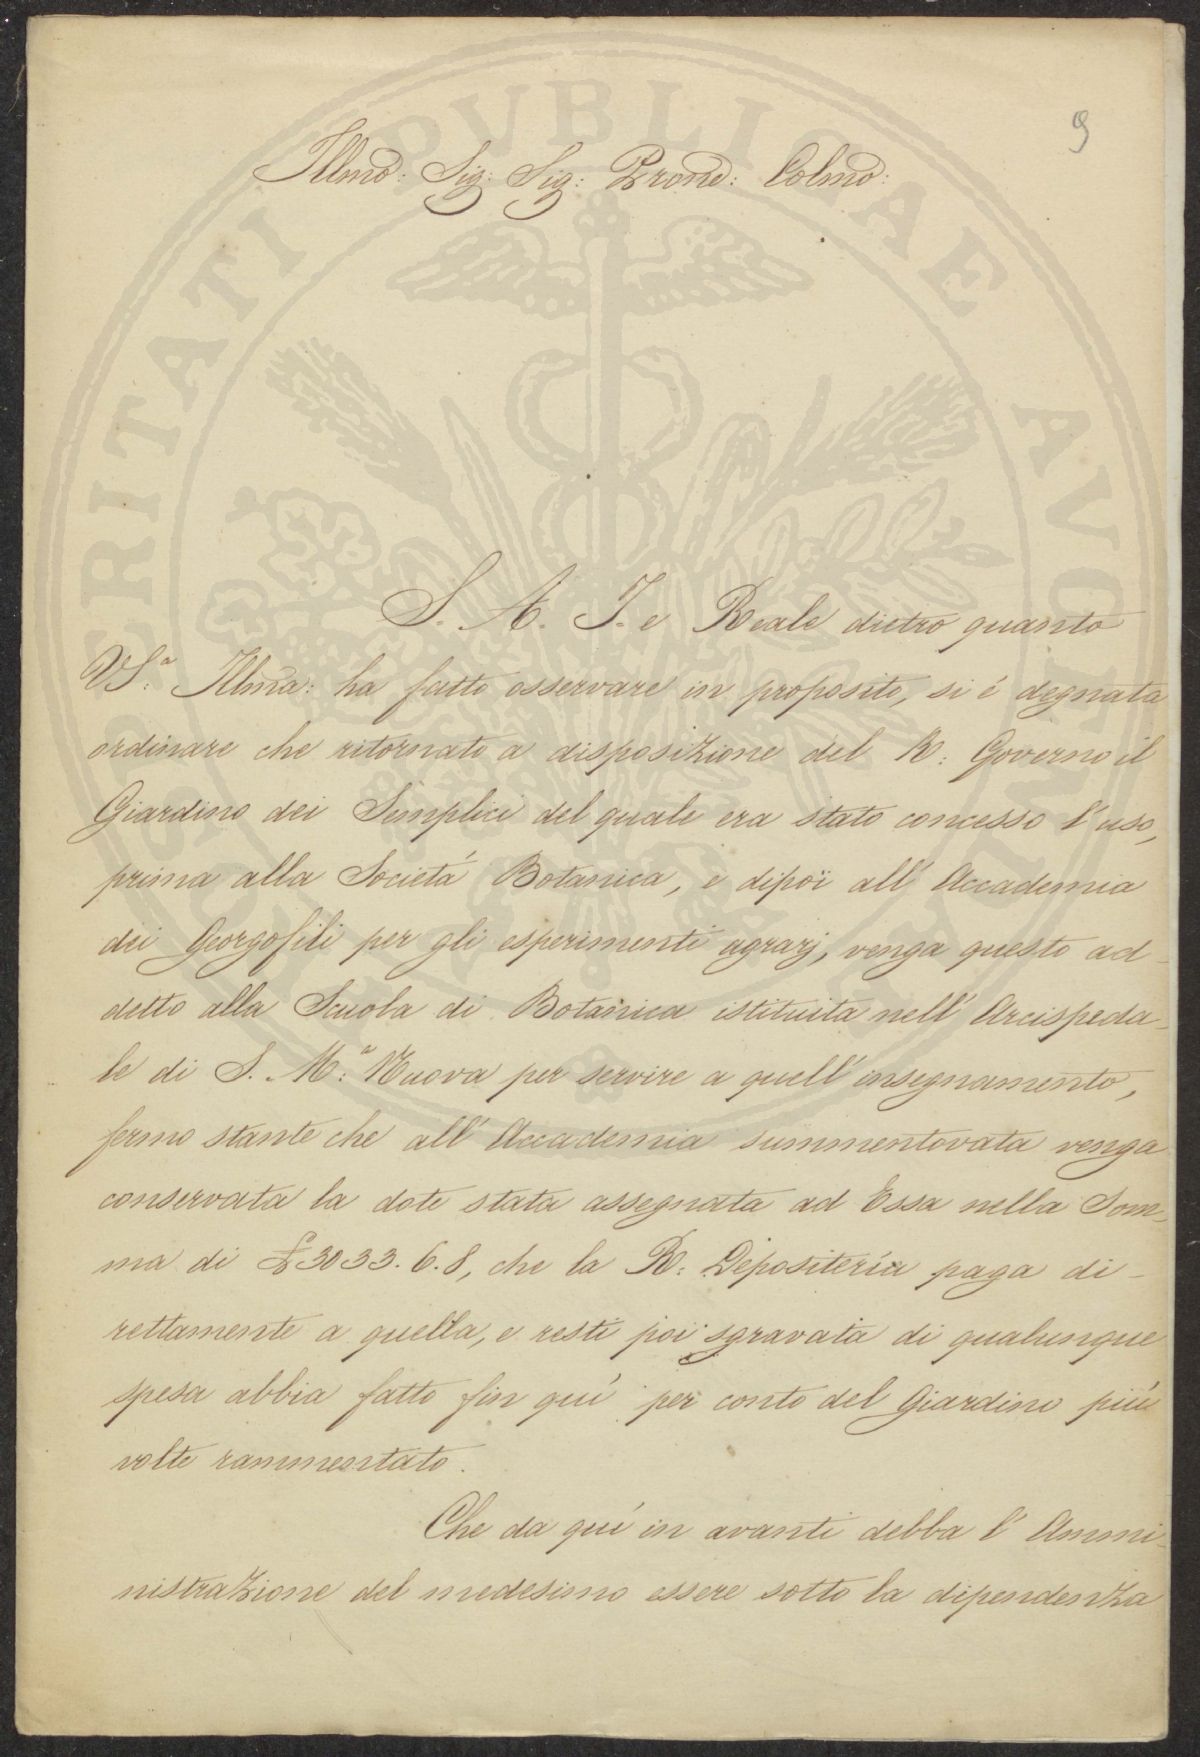 9
Illmo: Sig: Sig: Prone: Colmo:
S. A. I. e Reale dietro quanto
VS.a Illma: ha fatto osservare in proposito, si é degnata
ordinare che ritornato a disposizione del R: Governo il
Giardino dei Semplici del quale era stato concesso l'uso,
prima alla Societá Botanica, e dipoi all' Accademia
dei Georgofili per gli esperimenti agrarj, venga questo ad-
detto alla Scuola di Botanica istituita nell' Arcispeda-
le di S. M.a Nuova per servire a quell' insegnamento,
fermo stante che all' Accademia summentovata venga
conservata la dote stata assegnata ad Essa nella Som-
ma di £ 3033. 6. 8, che la R: Depositería paga di-
rettamente a quella, e resti poi sgravata di qualunque
spesa abbia fatto fin quí per conto del Giardino piú
volte rammentato.
Che da quí in avanti debba l' Ammi-
nistrazione del medesimo essere sotto la dipendenza
PROSPERITATI PVBLICAE AVGENDAE